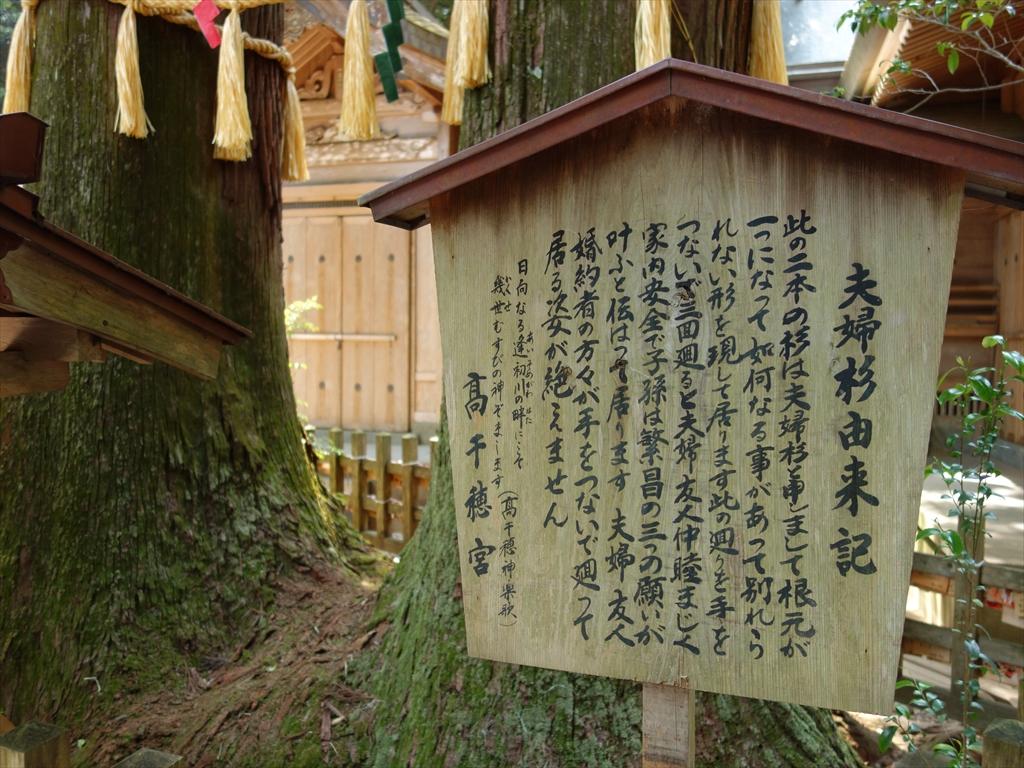 夫婦杉由来記
此の二本の杉は夫婦杉と申しまして根元が
一つになって如何なる事があって別れら
れない形を現して居ります此の廻りを手を
つないで三回廻ると夫婦友人仲睦まじく
家内安全で子孫は繁昌の三つの願いが
叶ふと伝はって居ります 夫婦友人
婚約者の方々が手をつないで廻って
居る姿が絶えません
日向なる逢初川の畔にこそ
あいぞめがわ はた
幾世むすびの神ぞまします(高千穂神楽歌)
いくせ
髙千穂宮